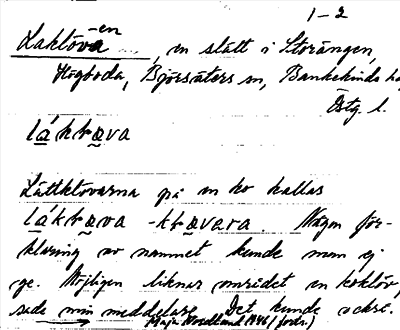 1-2
Laktöva -en
, en slått i Storängen,
Högboda, Björsäters sn, Bankekinds h
Östg. l.
láktøva
Lättklövarna på en ko kallas
láktøva -ktøvara. Någon för-
klaring av namnet kunde man ej
ge. Möjligen liknar området en koklöv,
sade min meddelare. Det kunde också.
Maja Nordlund 1946 (födr.)